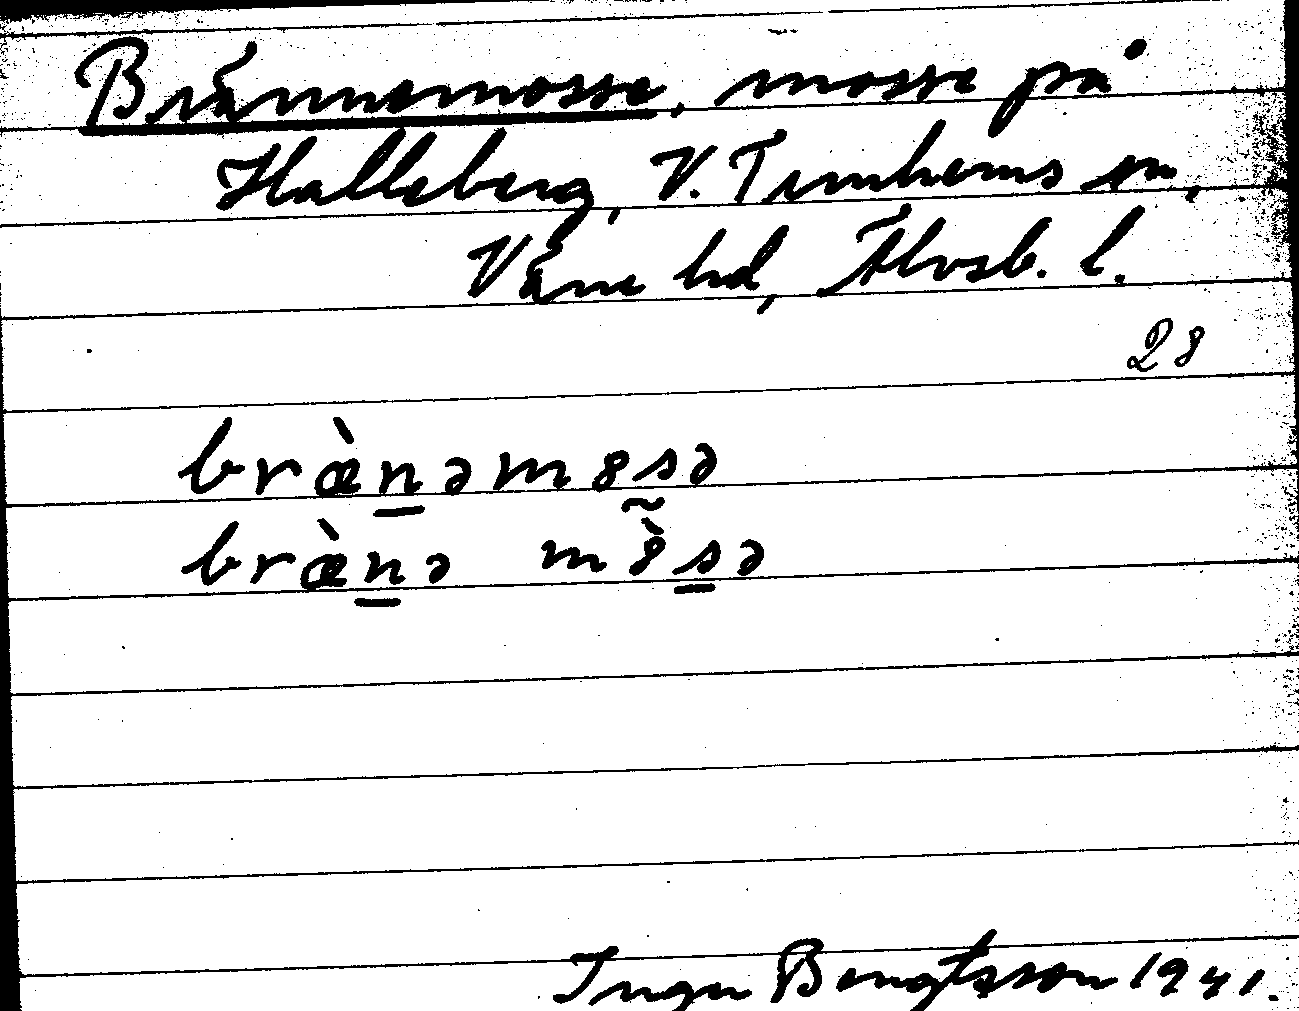 Brännemosse, mosse på
Halleberg, V. Tunhems sn,
Väne hd, Älvsb. l.
28
bræ̀n̲əm8s̰ə
bræ̀n̲ə m8̀s̲ə
Inger Bengtsson 1941.